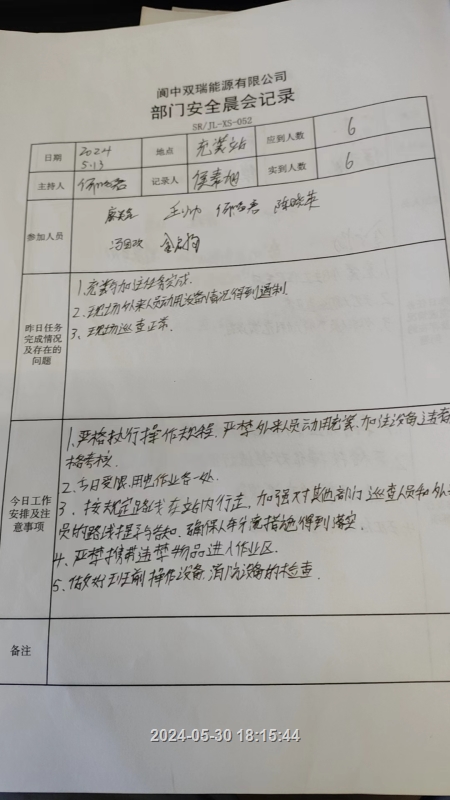 阆中双瑞能源有限公司
部门安全晨会记录
SR/JL-XS-052
日期 2024 5.13 地点 充装站 应到人数 6
主持人 记录人 实到人数 6
参加人员
昨日任务完成情况及存在的问题
1.充装加注任务完成.
2.现场外来人员动用设备情况得到遏制
3、现场巡查正常.
今日工作安排及注意事项
1.严格执行操作规程.严禁外来人员动用充装、加注设备违者
格考核.
2.今日受限.用电作业各一处.
3、按规定路线在站内行走,加强对其他部门巡查人员和外
员的路线提示与告知.确保人车分流措施得到落实.
4、严禁携带违禁物品进入作业区.
5、做好班前操作设备.消防设备的检查.
备注
2024-05-30 18:15:44